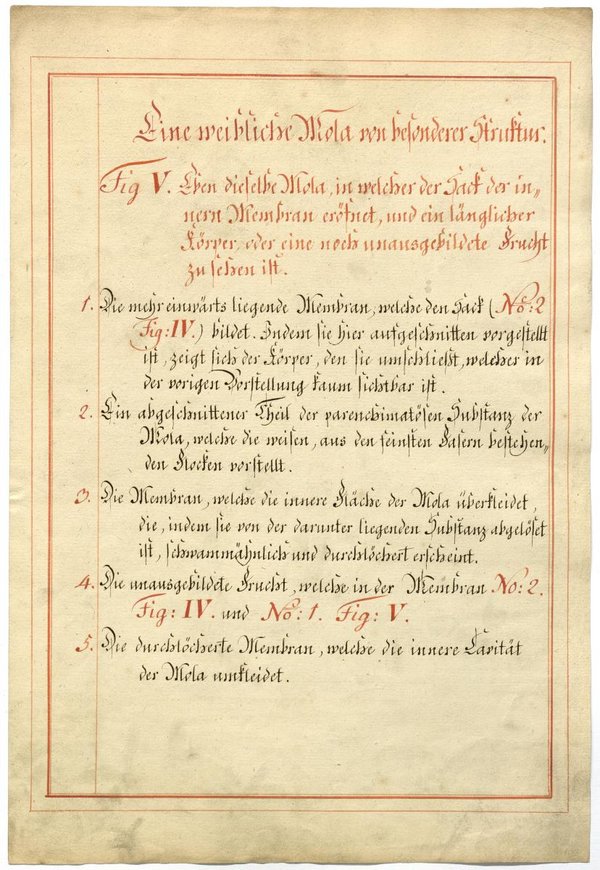 Eine weibliche Mola von besonderer Struktur.
Fig V. Eben dieselbe Mola, in welcher der Sack der in„
nern Membran eröfnet, und ein länglicher
Körper, oder eine noch unausgebildete Frucht
zu sehen ist.
1. Die mehr einwärts liegende Membran, welche den Sack (No: 2
Fig: IV.) bildet. Indem sie hier aufgeschnitten vorgestellt
ist, zeigt sich der Körper, den sie umschließt, welcher in
der vorigen Vorstellung kaum sichtbar ist.
2. Ein abgeschnittener Theil der parenchimatösen Substanz der
Mola, welche die weisen, aus den feinsten Fasern bestehen„
den Flocken vorstellt.
3. Die Membran, welche die innere Fläche der Mola überkleidet,
die, indem sie von der darunter liegenden Substanz abgelöset
ist, schwammähnlich und durchlöchert erscheint.
4. Die unausgebildete Frucht, welche in der Membran No: 2.
Fig: IV. und No: 1. Fig: V.
5. Die durchlöcherte Membran, welche die innere Cavität
der Mola umkleidet.